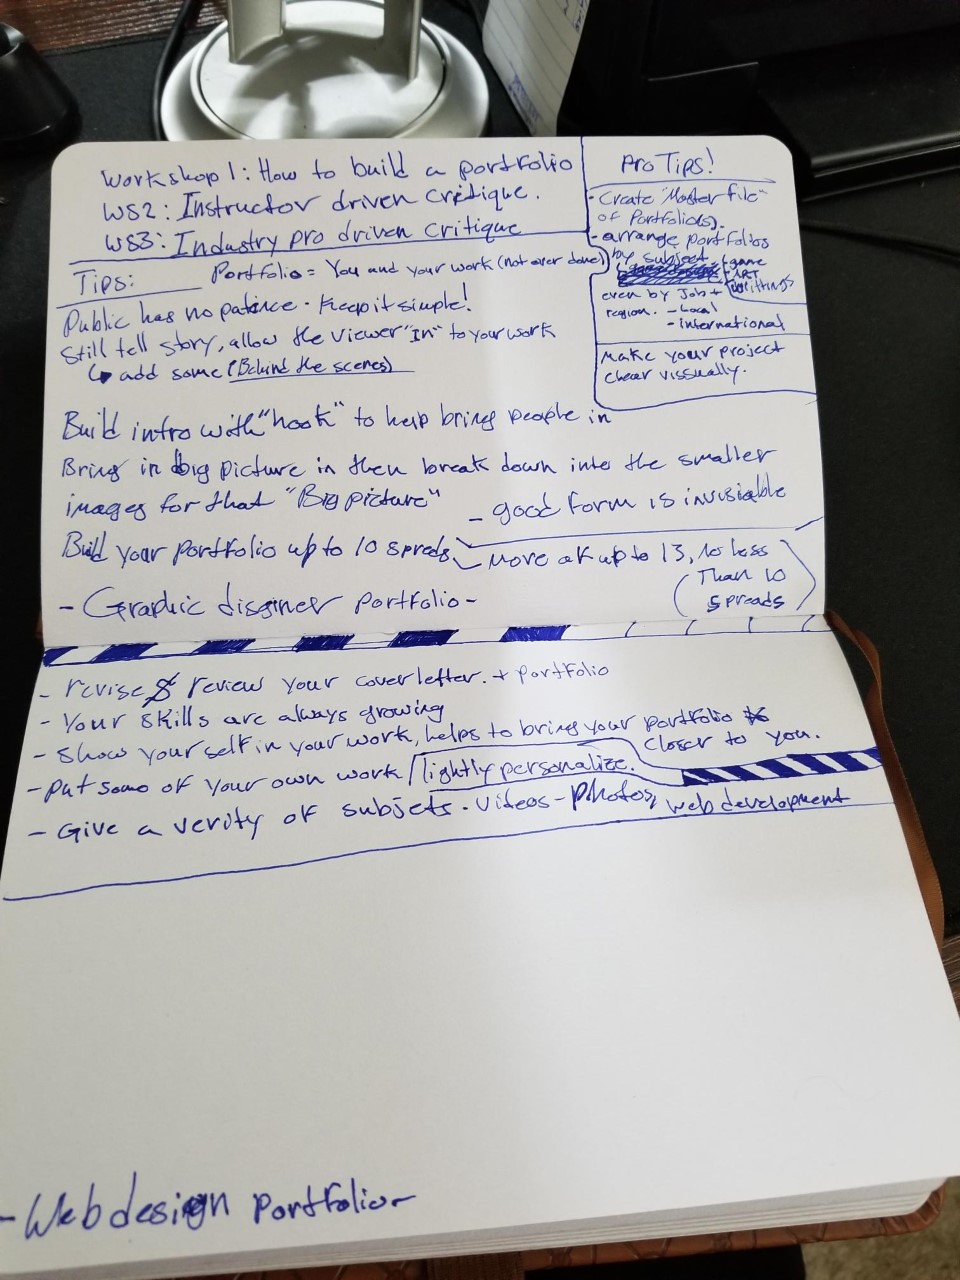 Workshop 1: How to build a portfolio
WS2: Instructor driven critique.
WS3: Industry pro driven critique
Tips:
Portfolio = You and your work (not over done)
Public has no patince - Keep it simple!
Still tell story, allow the viewer "In" to your work
↳ add some (Behind the scenes)
Pro Tips!
- Create "Master file"
of Portfolio(s).
- arrange portfolios
by subject
game
ART
writtings
even by Job +
region. - Local
- international
Make your project
clear vissually.
Build intro with "hook" to help bring people in
Bring in big picture in then break down into the smaller
images for that "Big picture"
- good form is invisiable
Build your portfolio up to 10 spreds
More ok up to 13, no less
(Than 10
spreads)
- Graphic disginer portfolio -
- revise & review your coverletter. + portfolio
- Your skills are always growing
- Show your self in your work, helps to bring your portfolio
closer to you.
- Put some of your own work / lightly personalize.
- Give a verity of subjets. Videos - Photos, web development
- Web design portfolio -